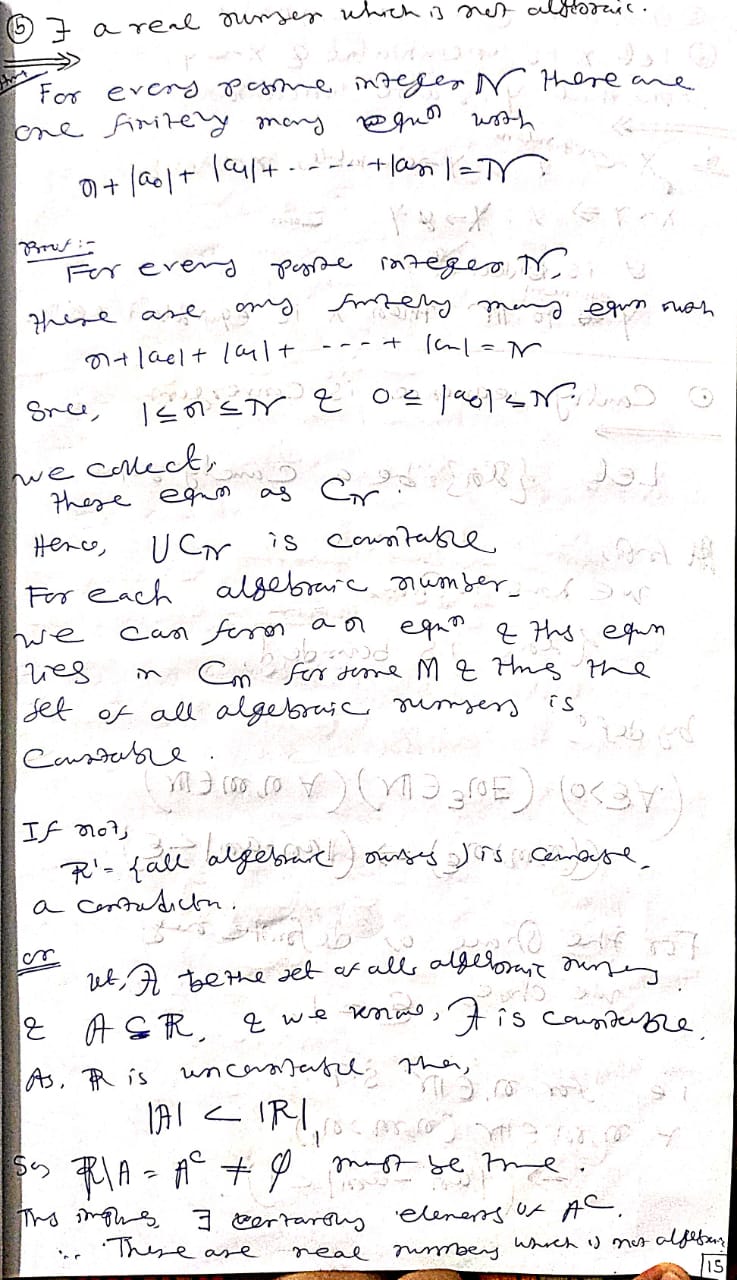 ⑤ ∃ a real number which is not algebraic.
For every positive integer N there are
one finitely many equn with
n + |a₀| + |a₁| + ---- + |aₙ| = N.
Proof :-
For every positive integer N,
there are only finitely many equn with
n + |a₀| + |a₁| + ---- + |aₙ| = N
Since, 1 ≤ n ≤ N & 0 ≤ |a₀| ≤ N.
we collect,
these equn as C_N.
Hence, ∪C_N is countable
For each algebraic number,
we can form an equn & this equn
lies in C_M for some M & thus the
set of all algebraic numbers is
Countable.
If not,
R = {all algebraic numbers} is countable,
a contradiction.
or
let, A be the set of all algebraic numbers
& A ⊆ R, & we know, A is countable.
As, R is uncountable then,
|A| < |R|,
So R\A = Aᶜ ≠ φ must be true.
This implies ∃ elements of Aᶜ.
∴ There are real numbers which is not algebraic
15